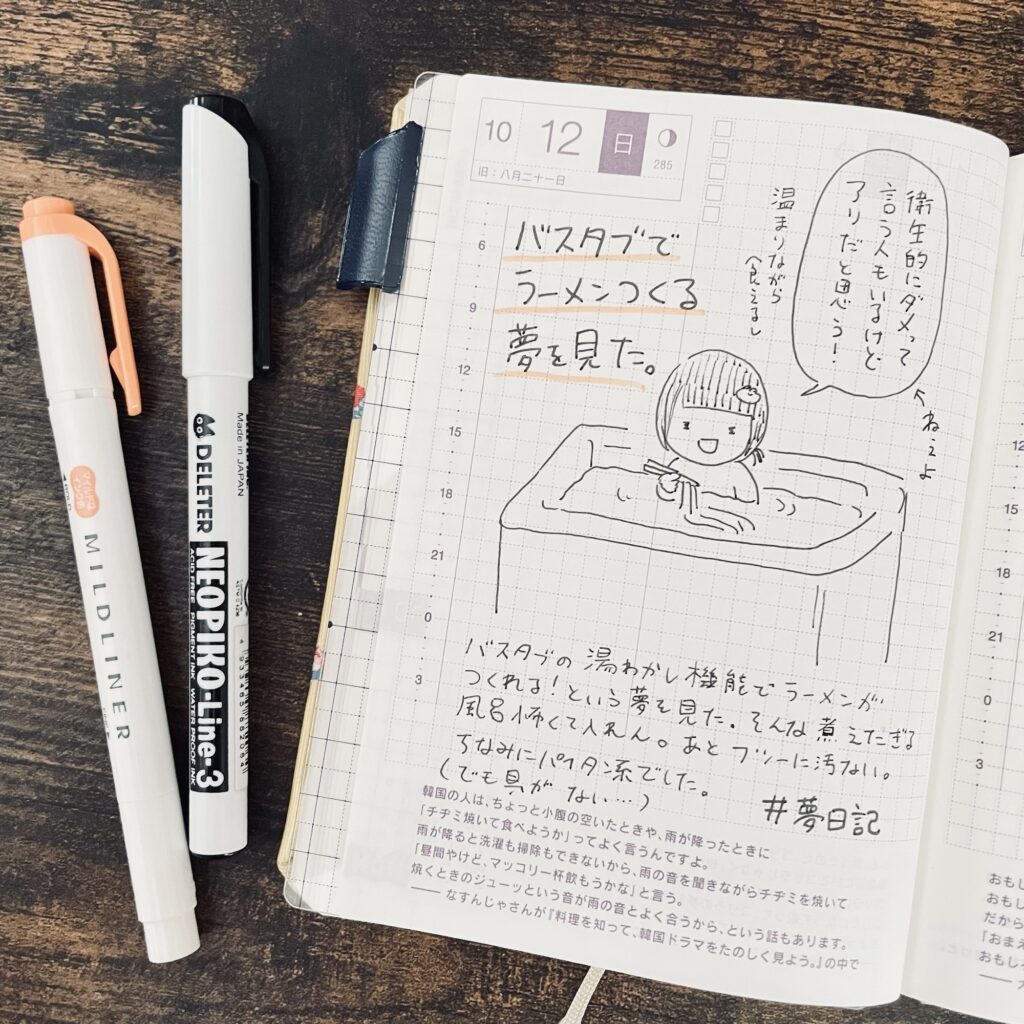 10 12 日
285
旧：八月二十一日
バスタブで
ラーメンつくる
夢を見た。
温まりながら
食えるし
衛生的にダメって
言う人もいるけど
アリだと思う！
ねぇよ
6
9
12
15
18
21
0
3
バスタブの湯わかし機能でラーメンが
つくれる！という夢を見た。そんな煮えたぎる
風呂怖くて入れん。あとフツーに汚ない。
ちなみにパイタン系でした。
（でも具がない…）
#夢日記
韓国の人は、ちょっと小腹の空いたときや、雨が降ったときに
「チヂミ焼いて食べようか」ってよく言うんですよ。
雨が降ると洗濯も掃除もできないから、雨の音を聞きながらチヂミを焼いて
「昼間やけど、マッコリ一杯飲もうかな」と言う。
焼くときのジューッという音が雨の音とよく合うから、という話もあります。
── なすんじゃさんが『料理を知って、韓国ドラマをたのしく見よう。』の中で
12
15
18
21
0
3
おもし
おもし
だから
「おまえ
おもしろ
マイルドな
MILDLINER
DELETER
Made in JAPAN
NEOPIKO-Line-3
ACID FREE PIGMENT INK WATER PROOF INK